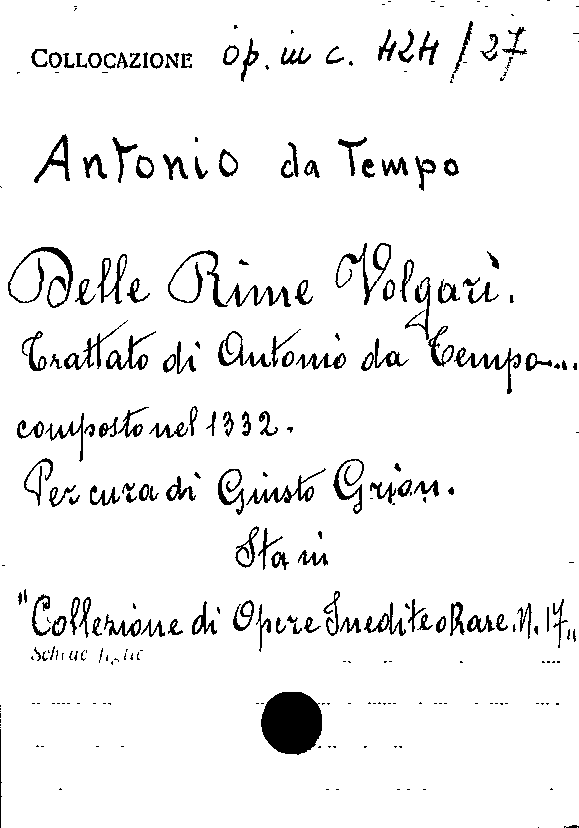 COLLOCAZIONE op. in c. 424/27
Antonio da Tempo
Delle Rime Volgari.
Trattato di Antonio da Tempo....
composto nel 1332.
Per cura di Giusto Grion.
Sta in
"Collezione di Opere Inedite o Rare. N. 17"